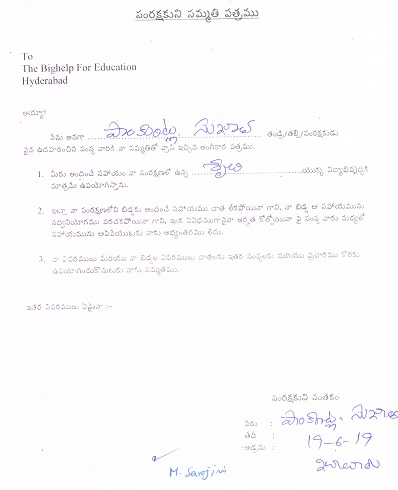 సంరక్షకుని సమ్మతి పత్రము
To
The Bighelp For Education
Hyderabad
అయ్యా!
నేను అనగా తండ్రి/తల్లి/సంరక్షకుడు
పైన ఉదహరించిన సంస్థ వారికి నా సమ్మతితో వ్రాసి ఇచ్చిన అంగీకార పత్రము.
1. మీరు అందించే సహాయం నా సంరక్షణలో ఉన్న యొక్క విద్యాభివృద్ధికి
మాత్రమే ఉపయోగిస్తాను.
2. ఇట్లా నా సంరక్షణలోని బిడ్డకు అందించే సహాయము దాత లేకపోయినా గాని, నా బిడ్డ ఆ సహాయమును
సద్వినియోగము పరచకపోయినా గాని, ఇంక ఏవిధముగానైనా అర్హత కోల్పోయినా పై సంస్థ వారు మధ్యలో
సహాయమును ఆపివేయుటకు నాకు అభ్యంతరము లేదు.
3. నా వివరములు మరియు నా బిడ్డల వివరములు దాతలకు ఇతర సంస్థలకు మరియు ప్రచారము కొరకు
ఉపయోగించుకొనుటకు నాకు సమ్మతము.
ఇతర వివరములు ఏమైనా :-
సంరక్షకుని సంతకం
పేరు :
తేది : 19-6-19
అడ్రసు :
M. Sarojini